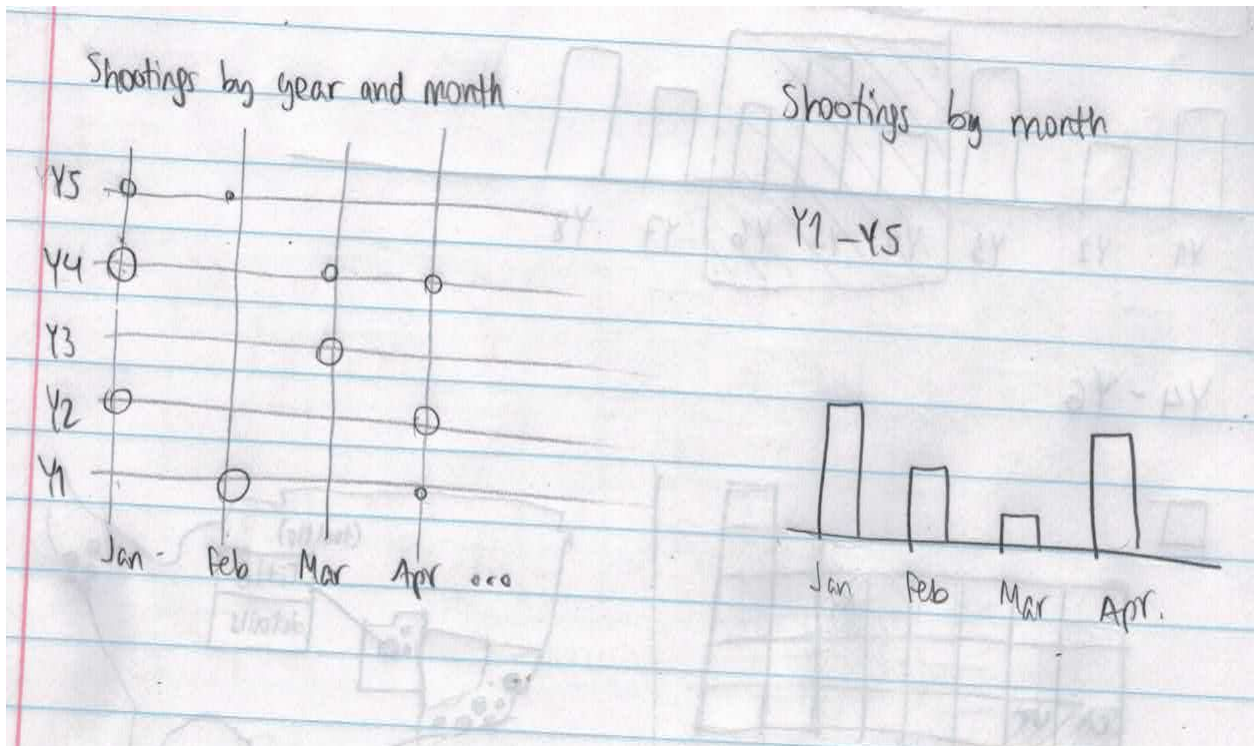 Shootings by year and month
Y5
Y4
Y3
Y2
Y1
Jan Feb Mar Apr ...
Shootings by month
Y1-Y5
Jan Feb Mar Apr.